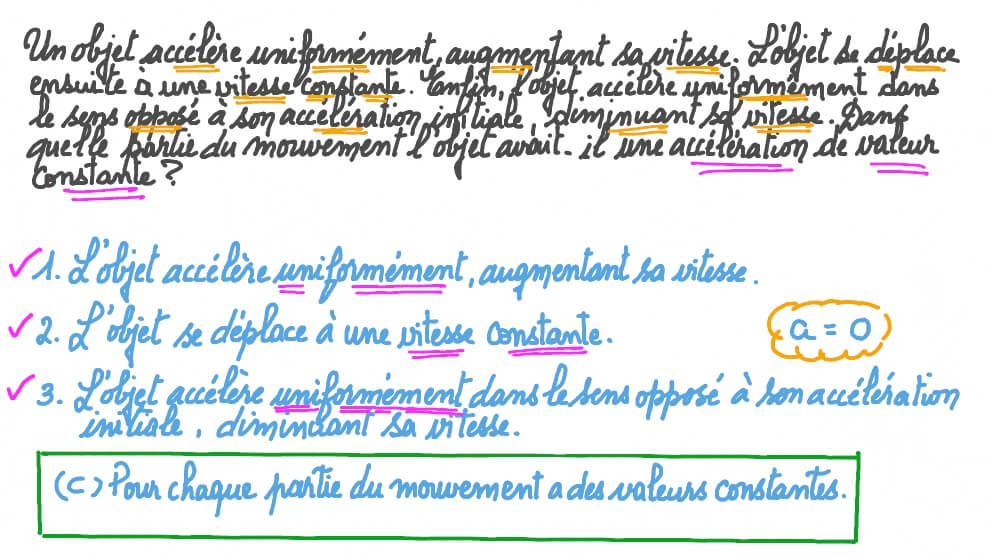 Un objet accélère uniformément, augmentant sa vitesse. L'objet se déplace
ensuite à une vitesse constante. Enfin, l'objet accélère uniformément dans
le sens opposé à son accélération initiale, diminuant sa vitesse. Dans
quelle partie du mouvement l'objet avait-il une accélération de valeur
constante ?
✓ 1. L'objet accélère uniformément, augmentant sa vitesse.
✓ 2. L'objet se déplace à une vitesse constante.
a = 0
✓ 3. L'objet accélère uniformément dans le sens opposé à son accélération
initiale, diminuant sa vitesse.
(C) Pour chaque partie du mouvement a des valeurs constantes.